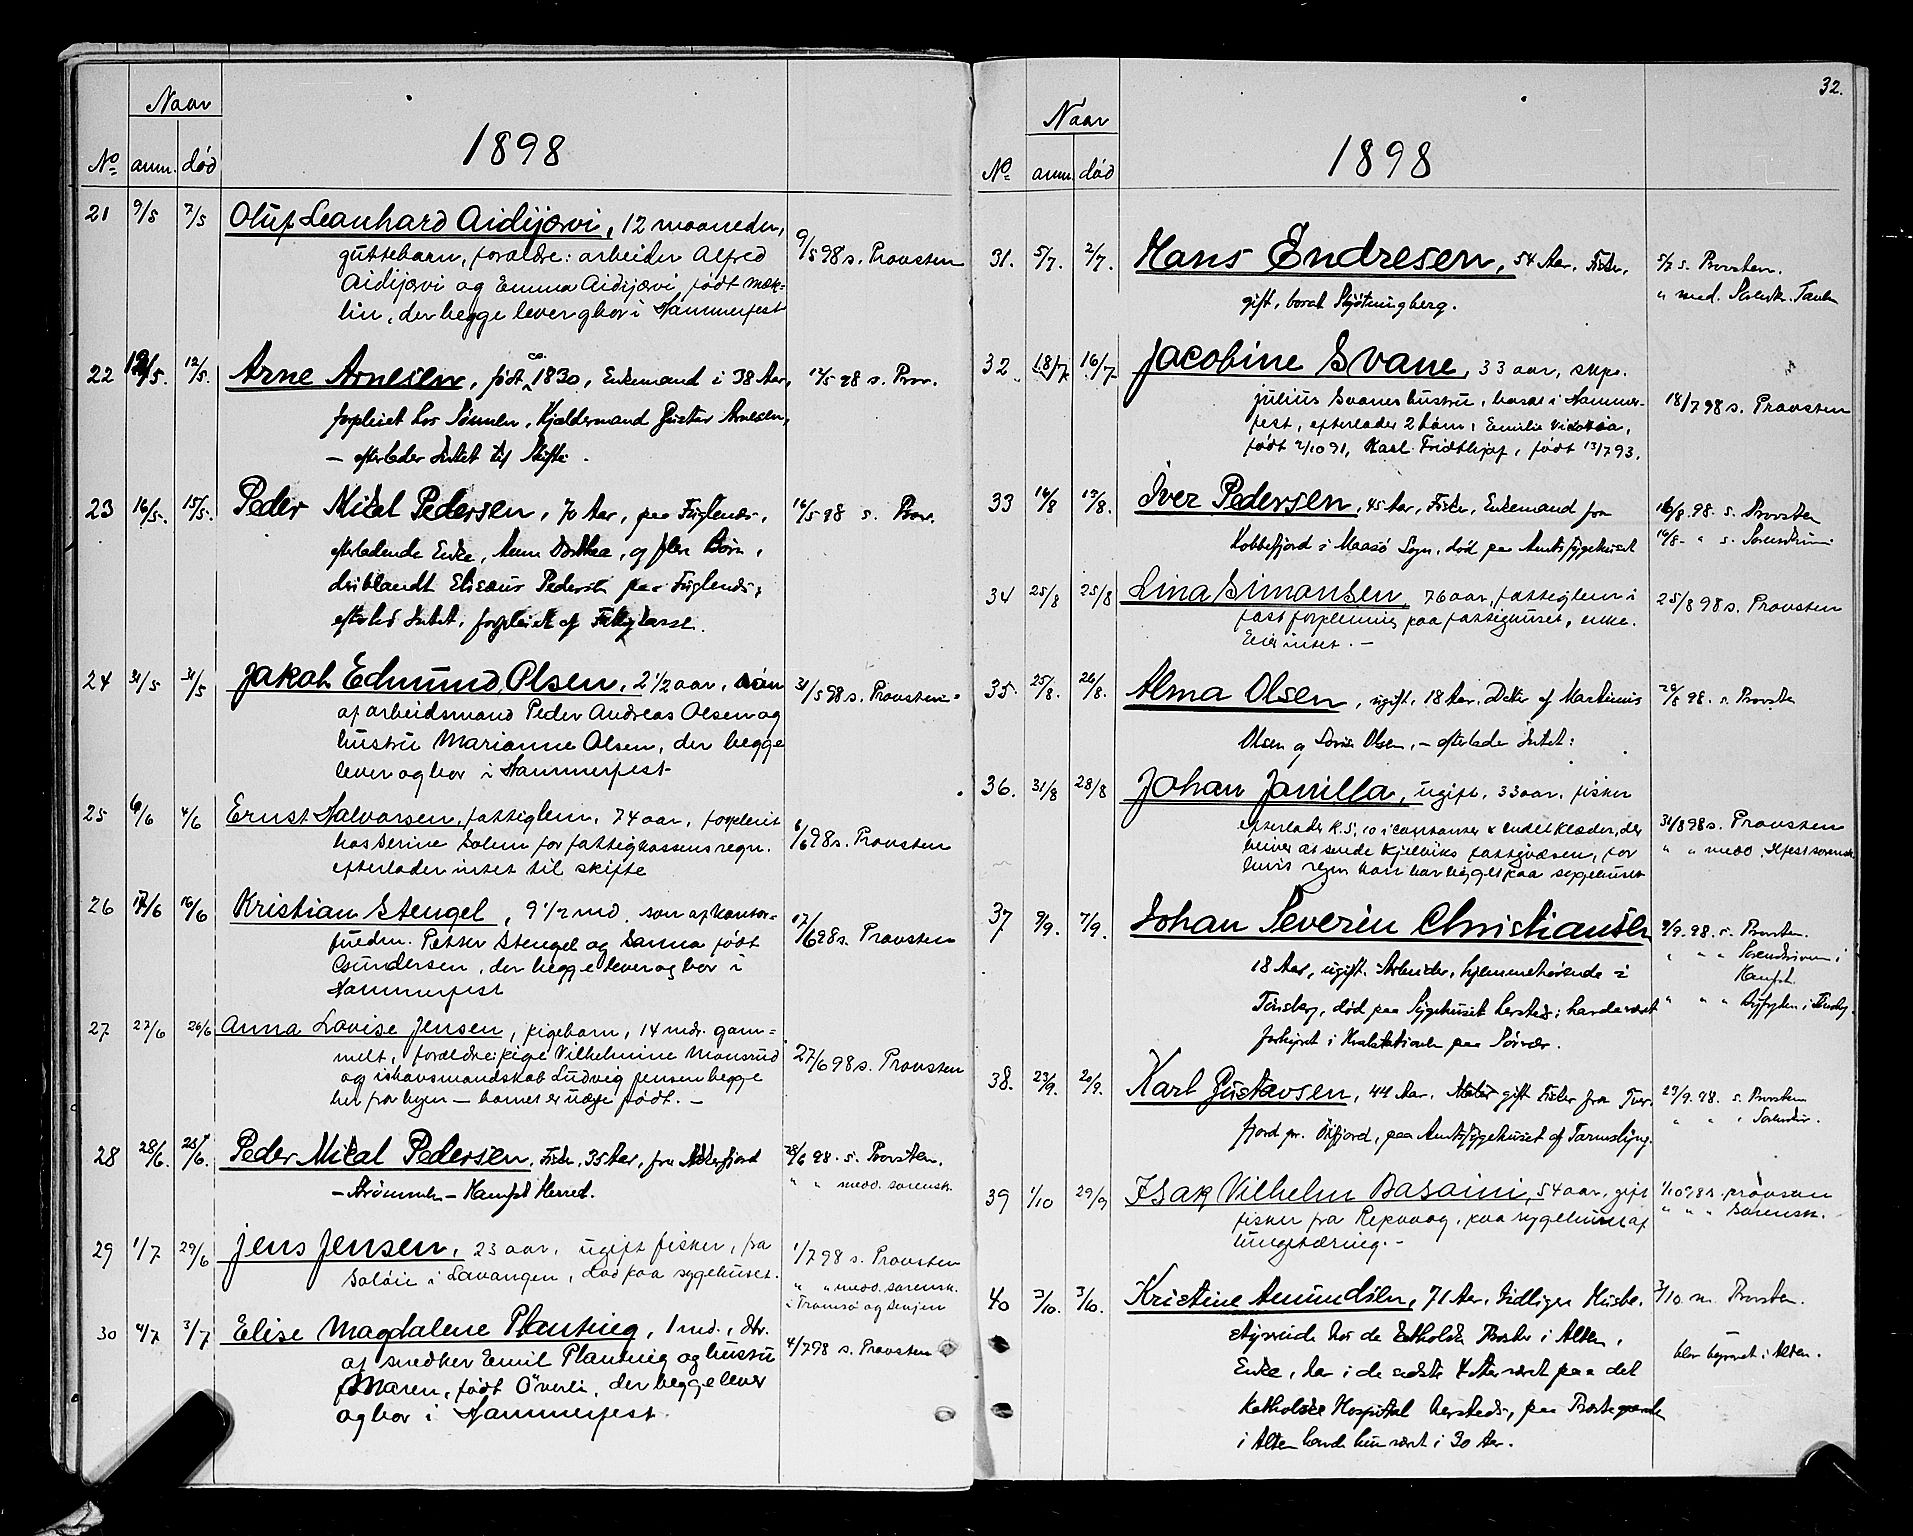 Naar
No anm. død
1898
21 9/5 7/5 Oluf Leonhard Aidijærvi, 12 maaneder,
guttebarn, forældre: arbeider Alfred
Aidijævi og Emma Aidijævi, født Mæk-
lin, der begge lever og bor i Hammerfest
9/5 98 s. Provsten
22 12/5. 12/5. Arne Arnesen, født ca. 1830, Enkemand i 38 Aar,
forpleiet hos Sønnen, Kjældermand Gustav Arnesen,
– efterlader Intet til Skifte.
12/5 98 s. Prov.
23 16/5. 15/5. Peder Mikal Pedersen, 70 Aar, paa Fuglenæs,
efterladende Enke, Anne Dorthea, og flere Børn,
deriblandt Eliseus Pedersen paa Fuglenæs,
efterlod Intet, forpleiet af Fattigkasse.
16/5 98 s. Prov.
24 31/5 31/5 Jakob Edmund Olsen, 2 1/2 aar, søn
af arbeidsmand Peder Andreas Olsen og
hustru Marianne Olsen, der begge
lever og bor i Hammerfest
31/5 98 s. Provsten
25 6/6 4/6 Ernst Halvorsen, fattiglem, 74 aar, forpleiet
hos Serine Solem for fattigkassens regn.
efterlader intet til skifte
6/6 98 s. Provsten
26 17/6 16/6 Kristian Stengel, 9 1/2 md. søn af kontor-
fuldm. Petter Stengel og Sanna født
Gundersen, der begge lever og bor i
Hammerfest
17/6 98 s. Provsten
27 27/6 26/6 Anna Lovise Jensen, pigebarn, 14 mdr. gam-
melt, forældre: pige Vilhelmine Monsrud
og ishavsmandskab Ludvig Jensen begge
her fra byen – barnet er uægte født. –
27/6 98 s. Provsten
28 28/6. 25/6. Peder Mikal Pedersen, Fisker, 35 Aar, fra
– Strømmen – Hamfst Herred.
28/6 98 s. Provsten.
" " medd. sorensk.
29 1/7 29/6 Jens Jensen, 23 aar, ugift fisker, fra
Soløie i Lavangen, død paa sygehuset.
1/7 98 s. Provsten
" " medd. sorensk.
i Tromsø og Senjen
30 4/7 3/7 Elise Magdalene Planting, 1 md., dtr.
af snedker Emil Planting og hustru
Maren, født Överli, der begge lever
og bor i Hammerfest.
4/7 98 s. Provsten
32.
Naar
No anm. død
1898
31. 5/7. 2/7. Hans Endresen, 54 Aar, Fisker,
gift, boende Skjøtningberg.
5/7 s. Provsten.
" med. Sorensk. Tanen
32 18/7 16/7 Jacobine Svane, 33 aar, skpr.
Julius Svanes hustru, boende i Hammer-
fest, efterlader 2 børn, Emilie Victoria,
født 2/10 91, Karl Fridthjof, født 13/7 93.
18/7 98 s. Provsten
33 16/8 13/8. Iver Pedersen, 45 Aar, Fisker, Enkemand fra
Kobbefjord i Maasø Sogn, død paa Amtssygehuset
16/8. 98. s. Provsten
16/8 – " s. Sorenskriv.
34 25/8 25/8 Lina Simonsen, 76 aar, fattiglem i
fast forpleining paa fattighuset, enke.
Eier intet. –
25/8 98 s. Provsten
35. 25/8. 26/8. Alma Olsen, ugift, 18 Aar. Datter af Martinius
Olsen og Olsen, – efterlader Intet:
98. s. Provsten
36. 31/8 28/8 Johan Janilla, ugift, 33 aar, fisker
efterlader K. 5,10 i contanter & endel klæder, der
bliver at sende Kjelviks fattigvæsen, for
hvis regn. han har ligget paa sygehuset
31/8 98 s. Provsten
" " medd. Hfest sorensk.
37 9/9. 7/9. Johan Severin Christiansen
18 Aar, ugift, Arbeider, hjemmehørende i
Tønsberg, død paa Sygehuset hersteds; havde været
forhyret i Hvalstationen paa Sørvær.
9/9. 98. s. Provsten.
" " " Sorenskriveren i
Hamfst.
" " " Byfogden i Tønsbg.
38. 23/9. 20/9. Karl Gustavsen, 44 Aar, gift Fisker fra Tver-
fjord pr. Øxfjord, paa Amtssygehuset af Tarmslyng.
23/9. 98. s. Provsten
" " " Sorenskr.
39 1/10 29/9 Isak Vilhelm Basaini, 54 aar, gift
fisker fra Repvaag, paa sygehuset af
lungetæring. –
1/10 98 s. provsten
" " " Sorensk.
40 3/10. 3/10. Kristine Amundsen, 71 Aar, tidligere Husbe-
styrerinde hos de katholske Prester i Alten,
Enke, har i de sidste 4 Aar været paa det
katholske Hospital hersteds, paa Prestegaarden
i Alten havde hun været i 30 Aar.
3/10 m. Provsten.
blev begravet i Alten.